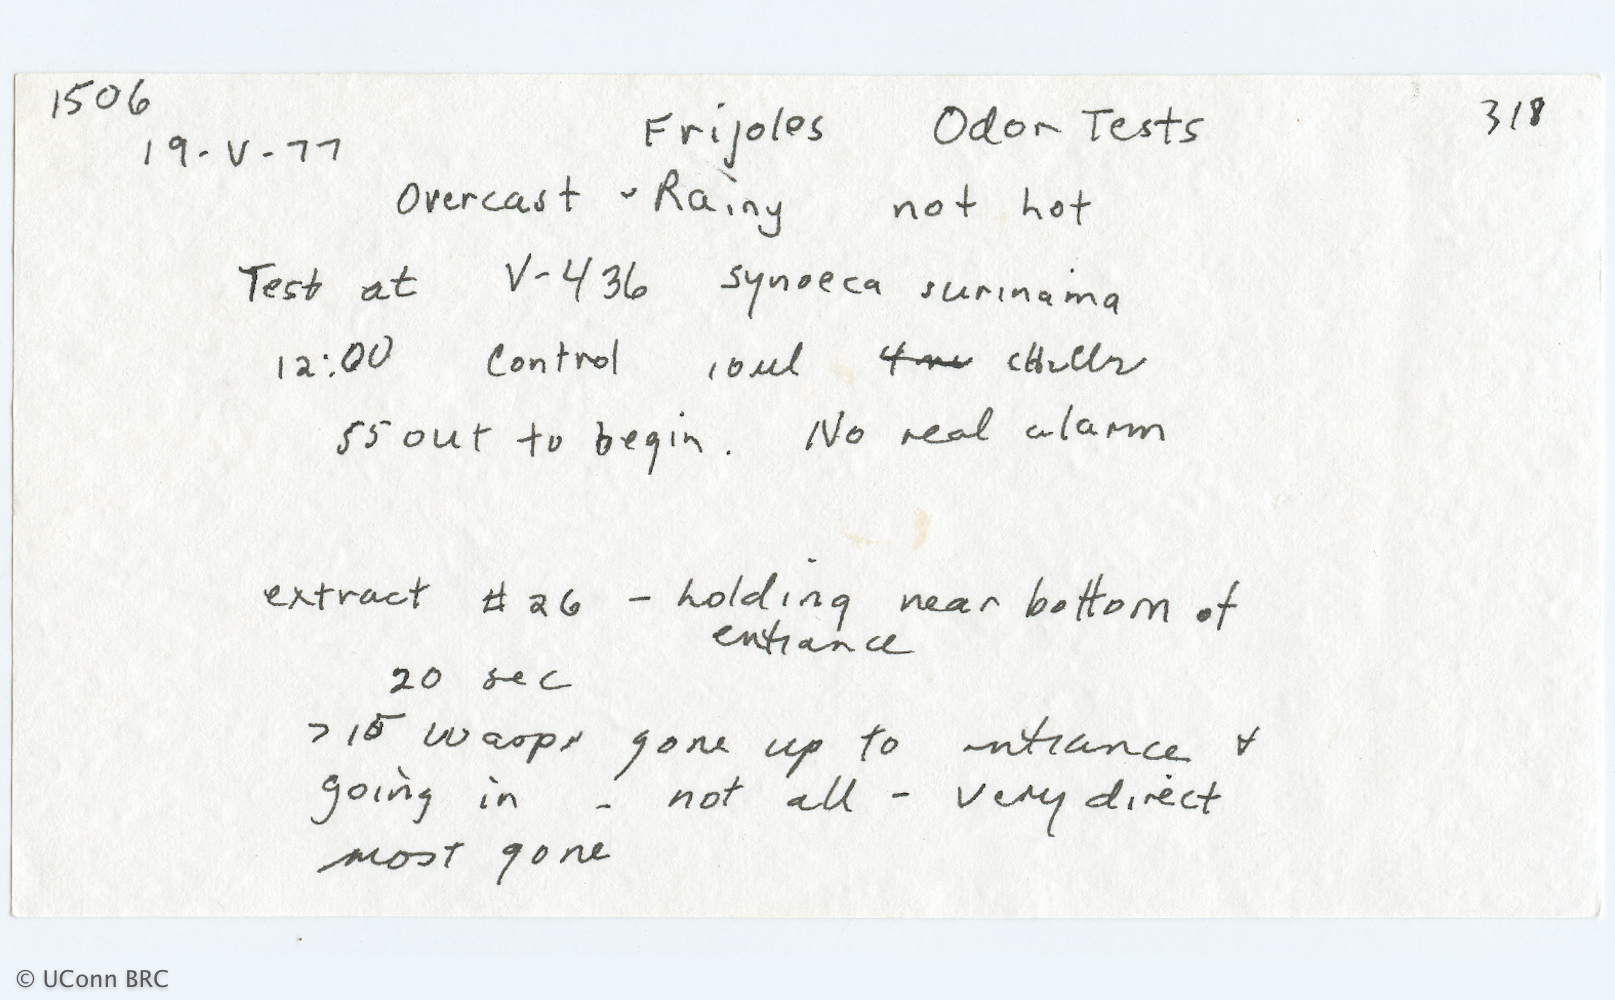 1506
19-V-77
Frijoles Odor Tests
318
Overcast - Rainy not hot
Test at V-436 synoeca surinama
12:00 Control 10ul
55 out to begin. No real alarm
extract #26 - holding near bottom of
entrance
20 sec
>15 wasps gone up to entrance &
going in - not all - very direct
most gone
© UConn BRC